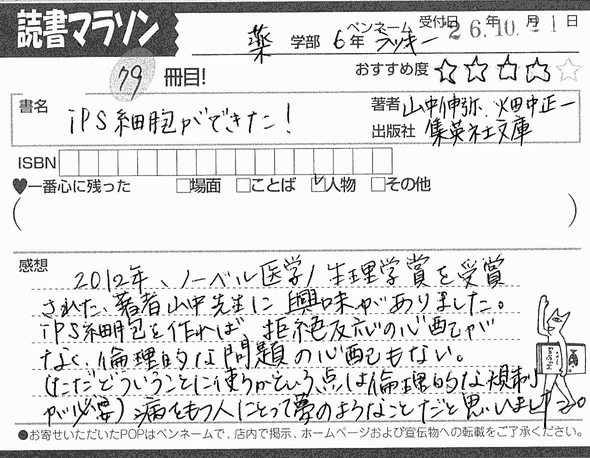 読書マラソン
薬 学部 6年 ペンネーム ラッキー 受付日 26年10月21日
79 冊目! おすすめ度
書名 iPS細胞ができた! 著者 山中伸弥、畑中正一
出版社 集英社文庫
ISBN
♥一番心に残った □場面 □ことば ☑人物 □その他
( )
感想
2012年、ノーベル医学/生理学賞を受賞
された、著者山中先生に興味がありました。
iPS細胞を作れば、拒絶反応の心配が
なく、倫理的な問題の心配もない。
(ただどういうことに使うかという点は倫理的な規制
が必要) 病をもつ人にとって夢のようなことだと思いました
●お寄せいただいたPOPはペンネームで、店内で掲示、ホームページおよび宣伝物への転載をご了承ください。